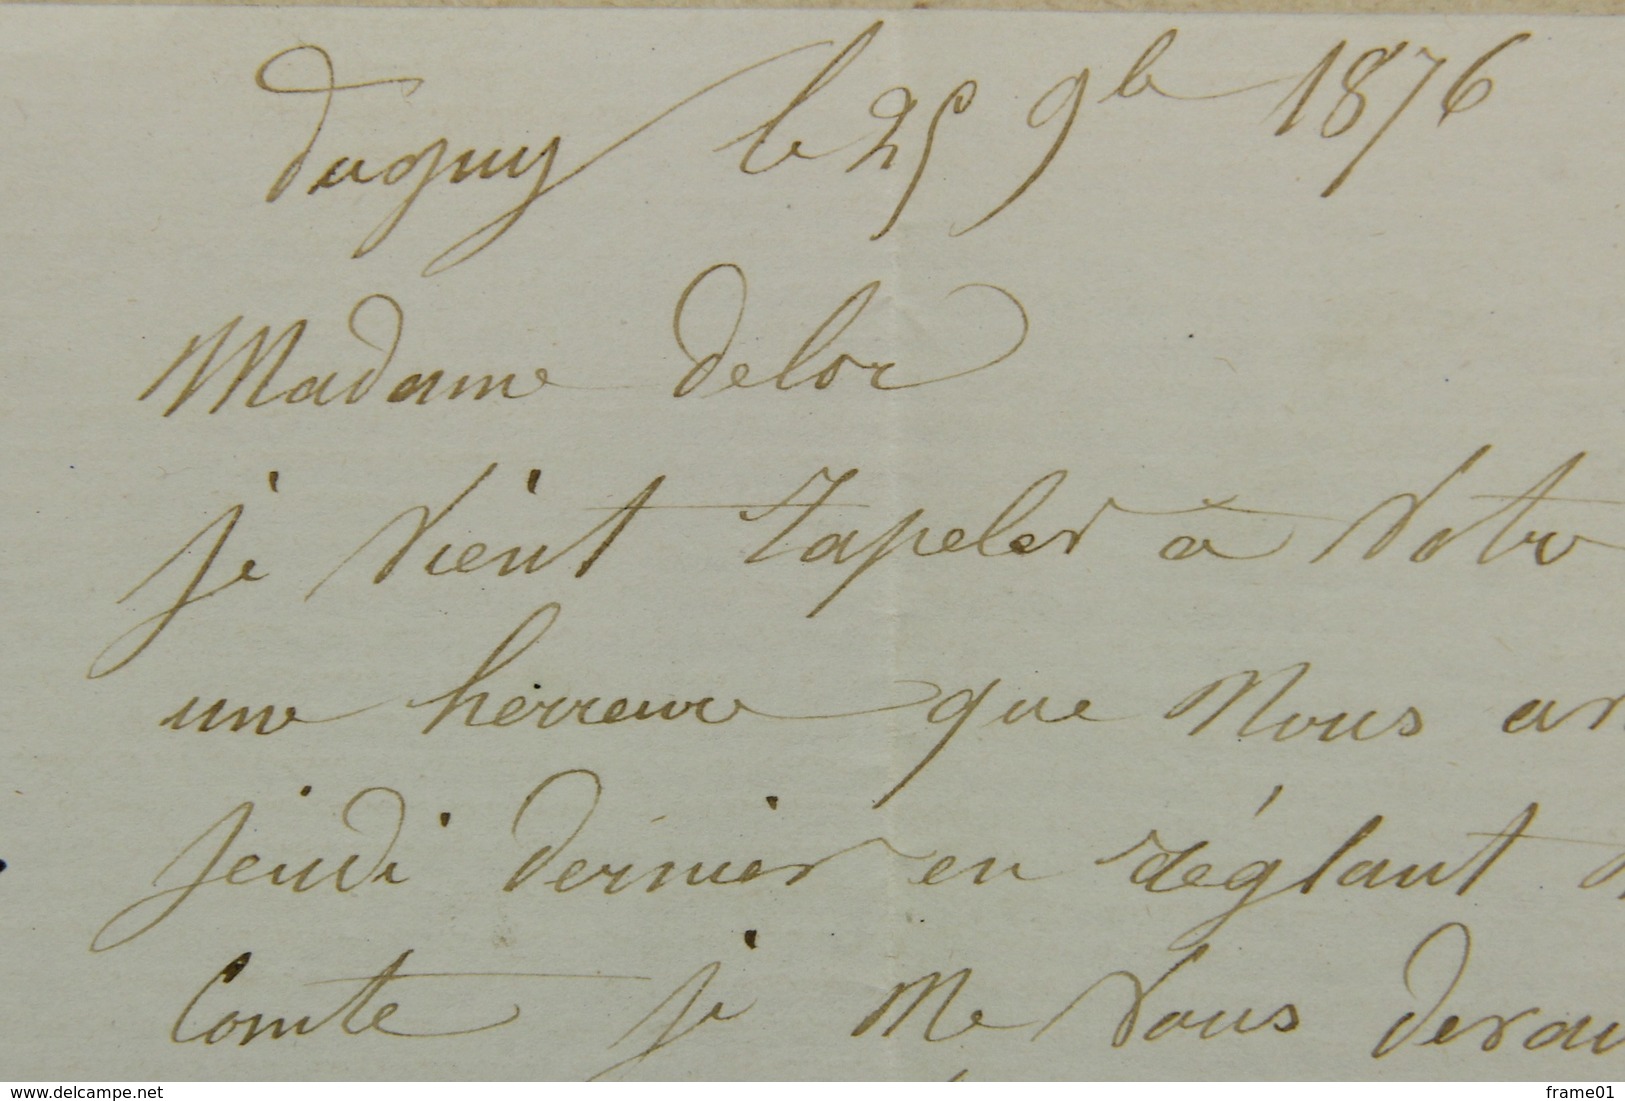 Dugny le 25 9b 1876
Madame Delor
je vient tapeler à votre
une herreure que nous av
jeudi dernier en réglant
Comte je me vous devai
www.delcampe.net
frame01